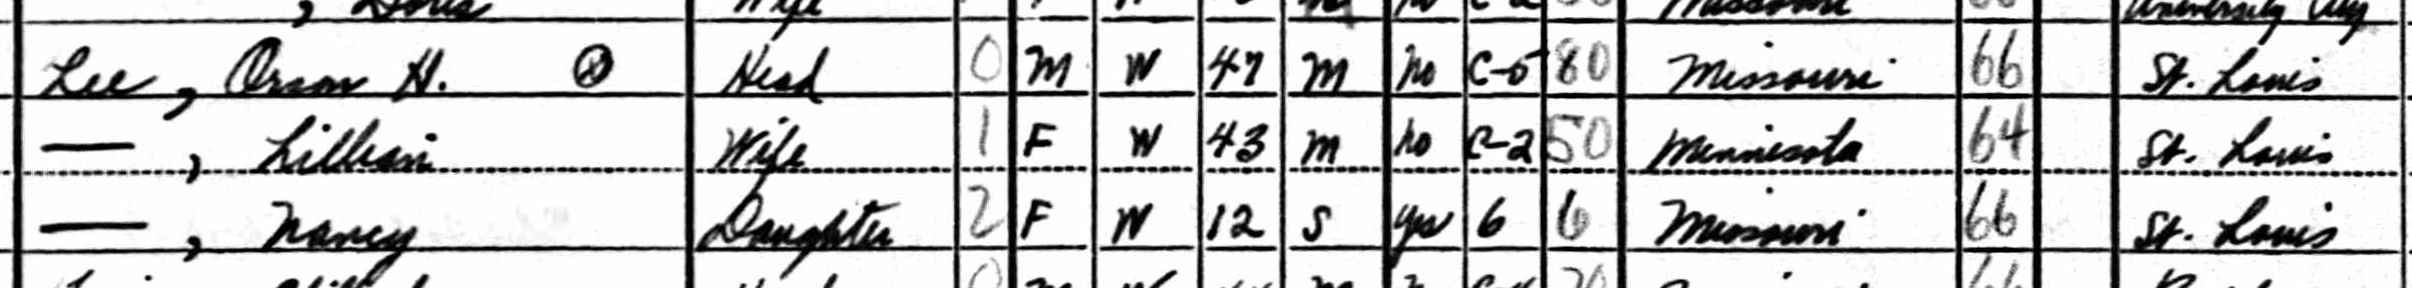 , Doris Wife
Lee, Orson H. ⓧ Head 0 M W 47 M no C-5 80 Missouri 66 St. Louis
— , Lillian Wife 1 F W 43 M no C-2 50 Minnesota 64 St. Louis
— , Nancy Daughter 2 F W 12 S yes 6 6 Missouri 66 St. Louis